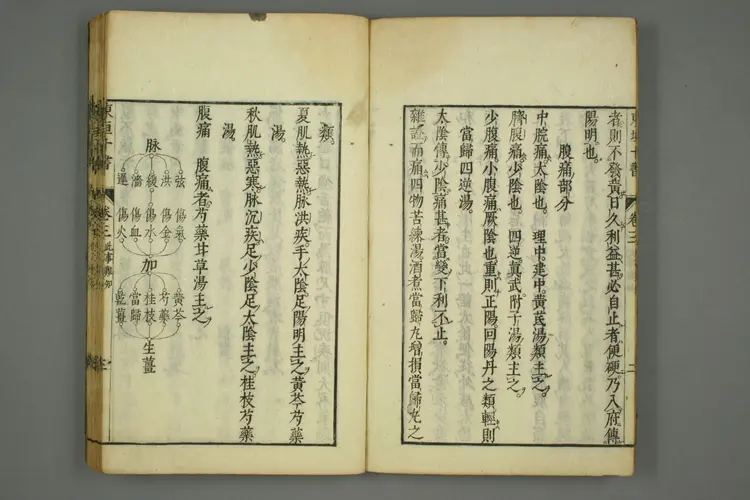 者則不發黃日久利益甚必自止者便硬乃入府傳
陽明也
腹痛部分
中脘痛太陰也 理中建中黃芪湯類主之
臍腹痛少陰也 四逆真武附子湯類主之
少腹痛小腹痛厥陰也重則正陽回陽丹之類輕則
當歸四逆湯
太陰傳少陰痛甚者當變下利不止
雜證而痛四物苦練湯酒煮當歸丸增損當歸丸之
類
夏肌熱惡熱脉洪疾手太陰足陽明主之黃芩芍藥
湯
秋肌熱惡寒脉沉疾足少陰足太陰主之桂枝芍藥
湯
腹痛 腹痛者芍藥甘草湯主之
脉
弦 傷氣
洪 傷金
緩 傷水
濇 傷血
遲 傷火
加
黃芩
芍藥
桂枝
當歸
乾薑
生薑
東垣十書 卷三
卷三 二